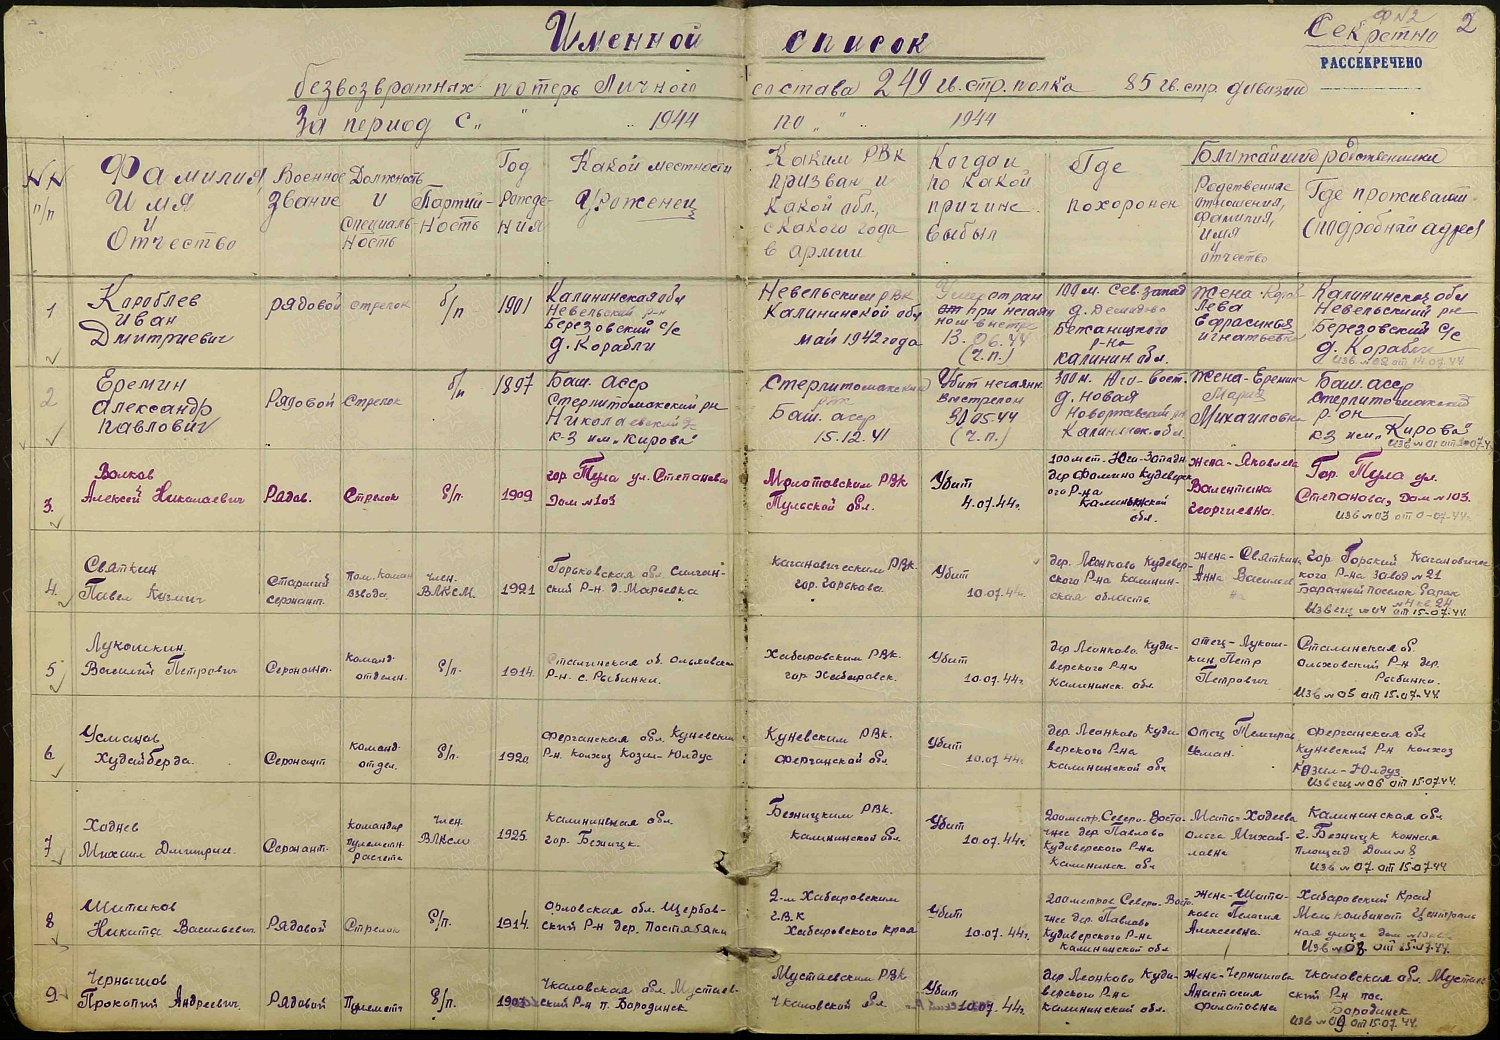 Именной список
Секретно
Ф №2
2
РАССЕКРЕЧЕНО
безвозвратных потерь Личного состава 249 гв. стр. полка 85 гв. стр. дивизии
За период с „ " .. 1944 по „ " .. 1944
№№ п/п
Фамилия, Имя и Отчество
Военное Звание
Должность и специальность
Партийность
Год рождения
Какой местности уроженец
Каким РВК призван и какой обл., с какого года в армии
Когда и по какой причине выбыл
Где похоронен
Ближайшие родственники
Родственные отношения, фамилия, имя и отчество
Где проживают (подробный адрес)
1
Кораблев
Иван
Дмитриевич
рядовой
стрелок
б/п
1901
Калининская обл
Невельский р-н
Березовский с/с
д. Корабли
Невельским РВК
Калининской обл
май 1942 года
13.06.44
(ч.п.)
100 м. Сев. запад
д. Демидово
Бежаницкого
р-на
Калинин обл.
Жена-
Ефрасинья
Игнатьевна
Калининской обл
Невельский р-н
Березовский с/с
д. Корабли
Изв. №02 от 14.07.44
2
Еремин
Александр
Павлович
Рядовой
Стрелок
б/п
1897
Баш. асср
Стерлитомакский рн
Николаевский
к-з им. „Кирова"
Стерлитомакский
РВК
Баш. асср
15.12.41
Убит нечаянн.
выстрелом
30.05.44
(ч.п.)
300 м. Юго-Вост.
д. Новая
Новоржевский рн
Калининск. обл.
Жена-Еремина
Мария
Михайловна
Баш. асср
Стерлитомакский
р-он
к-з им. „Кирова"
3.
Волков
Алексей Николаевич
Рядов.
Стрелок
Б/п.
1909
гор. Тула ул. Степанова
Дом №103
Молотовским РВК
Тульской обл.
Убит
4.07.44г.
100 мет. Юго-Западн
дер Фомино Кудеверск
ого Р-на
Калининской
обл.
Жена-Яковлева
Валентина
Георгиевна.
Гор. Тула ул.
Степанова, Дом №103.
4.
Святкин
Павел Кузмич
Старший
сержант.
Пом. Коман
Взвода.
Член.
ВЛКСМ.
1921
Горьковская обл.
ский Р-н. д. Марьевка
Кагановическим РВК.
гор. Горькова.
Убит
10.07.44г.
дер. Леонково Кудевер-
ского Р-на Калинин-
ская область.
Жена-Святкина
Анна
гор. Горький Кагановичес
кого Р-на Завод №21
Барачный поселок барак
№4 кв 24
Извещ №04 от 15-07-44.
5
Лукошкин.
Василий Петрович
Сержант.
Команд.
отделен.
Б/п.
1914.
Сталинская об. Ольховский
Р-н. с. Рыбинки.
Хабаровским РВК.
гор. Хабаровск.
Убит
10.07.44г.
дер. Леонково. Куди-
верского Р-на
Калининск. обл.
отец-Лукош-
кин Петр
Петрович
Сталинская об.
Ольховский Р-н дер.
Рыбинки.
Изв №05 от 15.07.44
6
Усманов
Худайберда.
Сержант
Команд.
отдел.
Б/п.
1920
Ферганская обл. Куневский
Р-н. Колхоз Козил-Юлдус
Куневским РВК.
Ферганской обл.
Убит
10.07.44г.
дер. Леонково Куди-
верского Р-на
Калининской обл
отец
Усман.
Ферганская обл
Куневский Р-н колхоз
Кзил-Юлдуз
Извещ №06 от 15.07.44.
7
Ходнев
Михаил Дмитрие.
Сержант.
Командир
пулеметн.
расчета
Член.
ВЛКСМ
1925.
Калининская обл
гор. Бежицк.
Бежицким РВК.
Калининской обл.
Убит
10.07.44г.
200 метр. Северо-Восто-
чнее дер. Павлово
Кудиверского Р-на
Калининск обл
Мать-Ходнева
Ольга Михай-
ловна
Калининская обл
г. Бежицк конная
площад Дом №8
Изв №07. от 15.07.44
8
Шитиков
Никита Васильевич
Рядовой
Стрелок
Б/п.
1914.
Орловская обл. Щербов-
ский Р-н дер.
2-м Хабаровским
г.В.К
Хабаровского края
Убит
10.07.44г.
200 метров Северо-Восто
чнее дер. Павлово
Кудиверского Р-на
Калининской обл
Жена-Шити-
кова Пелагия
Алексеевна
Хабаровский Край
Мелькомбинат Централь
ная улица дом
Изв №08. от 15.07.44.
9.
Чернышов
Прокопий Андреевич.
Рядовой
Пулеметч
Б/п.
1903
Чкаловская обл. Мустаев-
ский Р-н п. Бородинск.
Мустаевским РВК
Чкаловской обл.
Убит
10.07.44г.
дер Леонково Куди-
верского Р-на
Калининской обл.
Жена-Чернышова
Анастасия
Филатовна
Чкаловская обл. Мустаев
ский Р-н пос.
Бородинск
Изв №09 от 15.07.44.